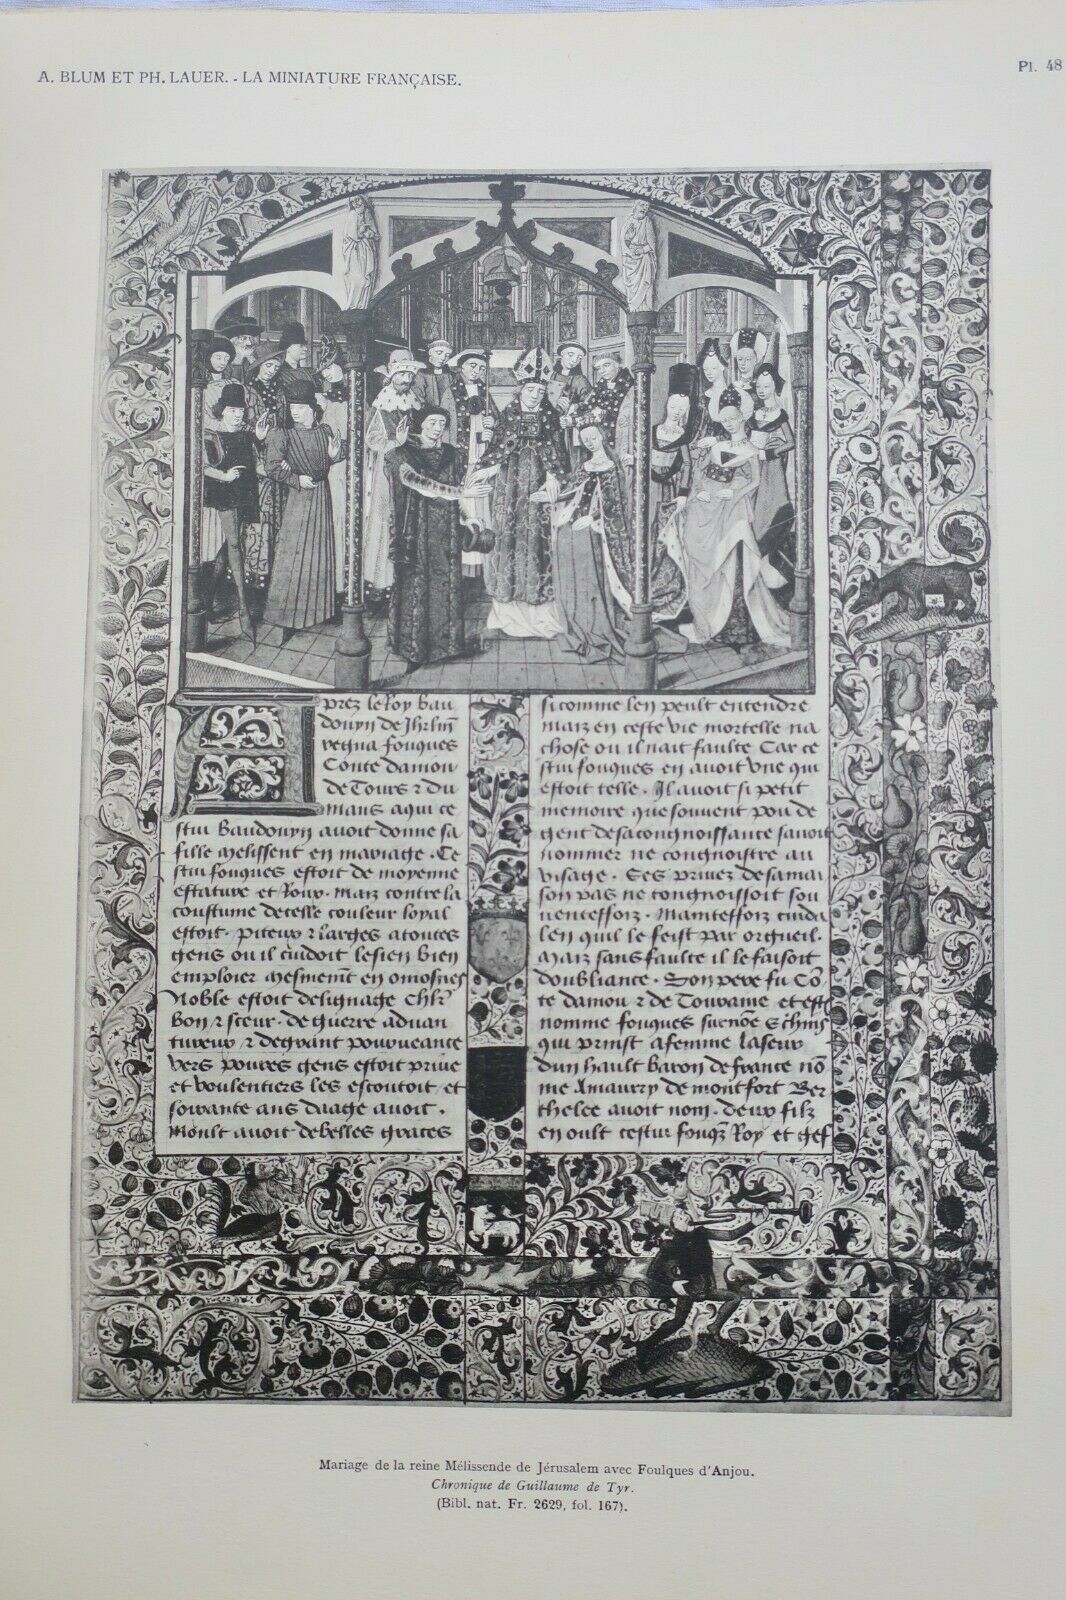 A. BLUM ET PH. LAUER. - LA MINIATURE FRANÇAISE.
Pl. 48
Aprez le Roy bau
douyn de Jhrlm
regna fouques
Conte daniou
de Tours z du
mans a qui ce
stui baudouyn auoit donne sa
fille melissent en mariage . Ce
stui fouques estoit de moyenne
estature et Roux . maiz contre la
coustume de telle couleur loyal
estoit . piteux z larges a toutes
gens ou il cuidoit le sien bien
emploier mesmemt en omosnes
Noble estoit de lignage chlr
bon z seeur . de guerre aduan
tureux z de grant pourueance
vers poures gens estoit priue
et voulentiers les escoutoit et
soixante ans daage auoit .
Moult auoit de belles graces
si comme len peult entendre
maiz en ceste vie mortelle na
chose ou il nait faulte Car ce
stui fouques en auoit vne qui
estoit telle . Il auoit si petit
memoire que souuent pou de
gent de sa congnoissance sauoit
nommer ne congnoistre au
visage . Ses priuez de sa mai
son pas ne congnoissoit sou
uenteffoiz . Mainteffoiz cuida
len quil le feist par orgueil .
Maiz sans faulte il le faisoit
doubliance . Son pere fu Co
te daniou z de Touraine et este
nomme fouques surnome Echins
qui prinst a femme la seur
dun hault baron de france no
me Amaurry de montfort Ber
thelee auoit nom . deux filz
en oult cestui fouqz Roy et gef
Mariage de la reine Mélissende de Jérusalem avec Foulques d'Anjou.
Chronique de Guillaume de Tyr.
(Bibl. nat. Fr. 2629, fol. 167).